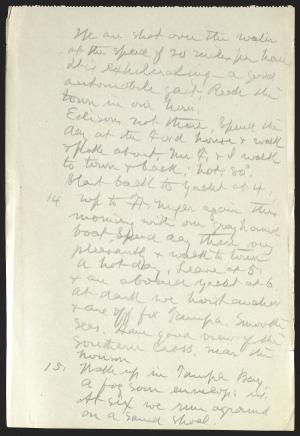 We are shot over the water
at the speed of 20 miles per hour
It is exhilerating — a good
automobile gait, Reach the
town in one hour.
Edison not there, Spend the
day at the Ford house & walk
& about. Mr F, & I walk
to town & back; hot, 80°,
Start back to yacht at 4,
14 Up to Ft. Myer again this
morning with our grayhound
boat. Spend day there very
pleasantly & walk to town
A hot day, Leave at 5
& are aboard yacht at 6,
At dark we hoist anchor
& are off for Tampa Smooth
seas. Have good view of the
Southern Cross, near the
horizon
15. Wake up in Tampa Bay,
A fog soon envelops us,
At six we run aground
on a sand shoal.